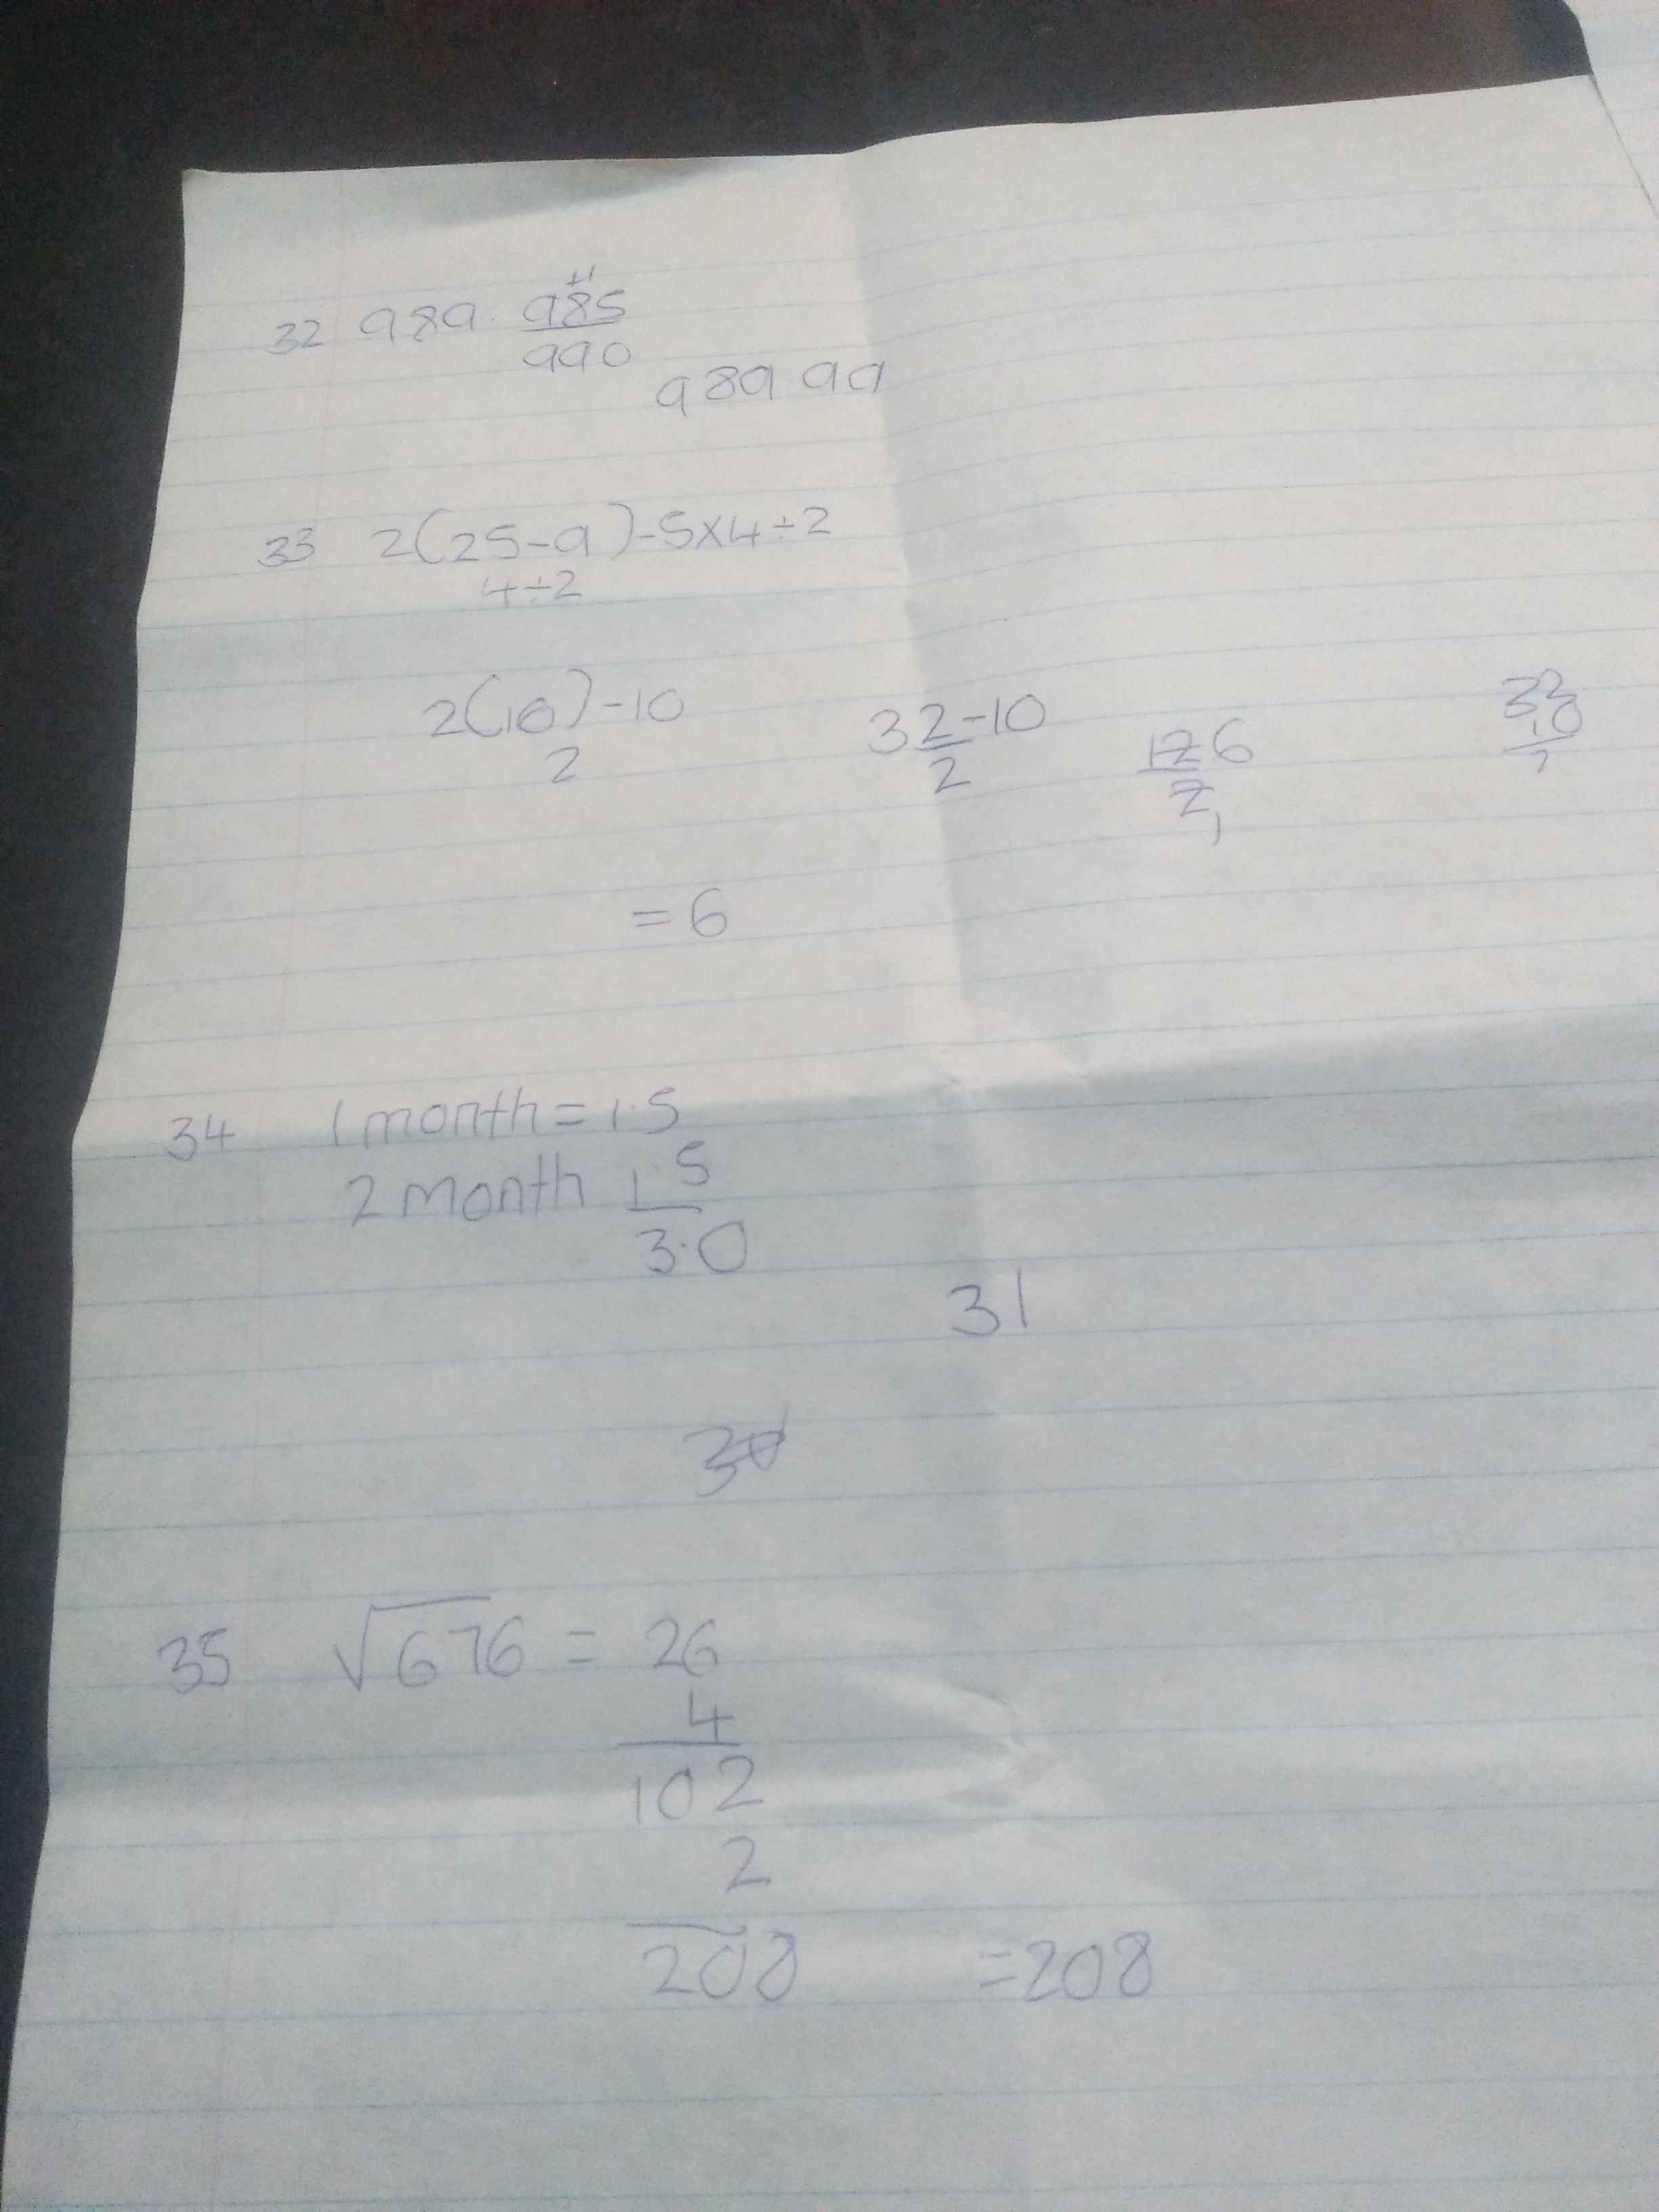 +1
32 989 985
990
98999
33 2(25-9)-5×4÷2
4÷2
2(16)-10
2
32-10
2
12 6
2 1
32
10
2
= 6
34 1 month = 1.5
2 month 1.5
3.0
31
35 √676 = 26
4
102
2
208 =208